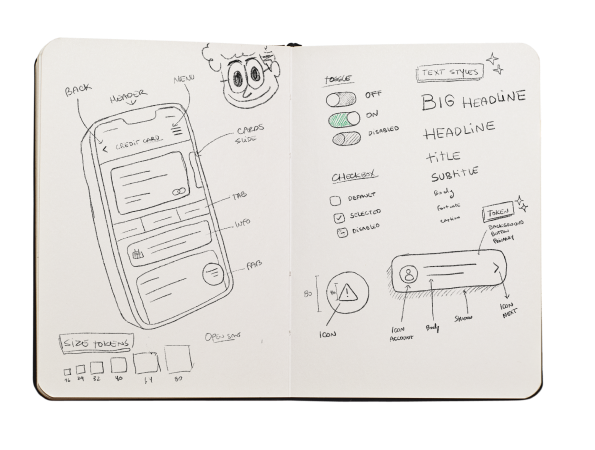 BACK
HEADER
MENU
CREDIT CARD
CARDS
SLIDE
TAB
INFO
FAB
SIZE TOKENS
16 24 32 40 64 80
TOGGLE
OFF
ON
DISABLED
CHECKBOX
DEFAULT
SELECTED
DISABLED
80
ICON
TEXT STYLES
BIG HEADLINE
HEADLINE
TITLE
SUBTITLE
Body
CAPTION
TOKEN
BACKGROUND
BUTTON
PRIMARY
ICON
ACCOUNT
Body
ICON
NEXT